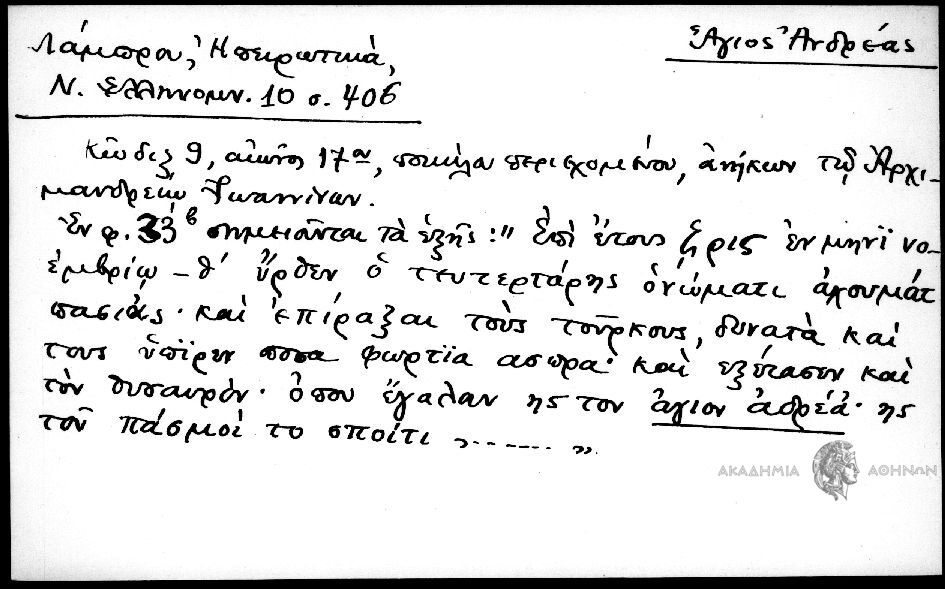 Λάμπρου, Ἠπειρωτικὰ,
Ἅγιος Ἀνδρέας
Ν. Ἑλληνομν. 10 σ. 406
Κῶδιξ 9, αἰῶνος 17ου, ποικίλα περιεχομένου, ἀνήκων τῷ Ἀρχι-
μανδρείῳ Ἰωαννίνων.
Ἐν φ. 33β σημειοῦνται τὰ ἑξῆς: " Ἐπὶ ἔτους ζρις ἐν μηνὶ νο-
έμβρίω - θ' ὕρθεν ὁ τευτερτάρης ὀνιώματι ἀχουμάτ
πασιᾶς · καὶ ἐπίραξαι τοὺς τούρκους, δυνατὰ καὶ
τους ὗπῖρεν ποσα φωρτῖα ασπρα· καὶ εξέτασεν καὶ
τὸν θυσαυρὸν · ὁπου ἔγαλαν ης τον ἅγιον ἀδρέά · ης
τοῦ πάσμοὶ το σποίτι , ....... "
ΑΚΑΔΗΜΙΑ ΑΘΗΝΩΝ